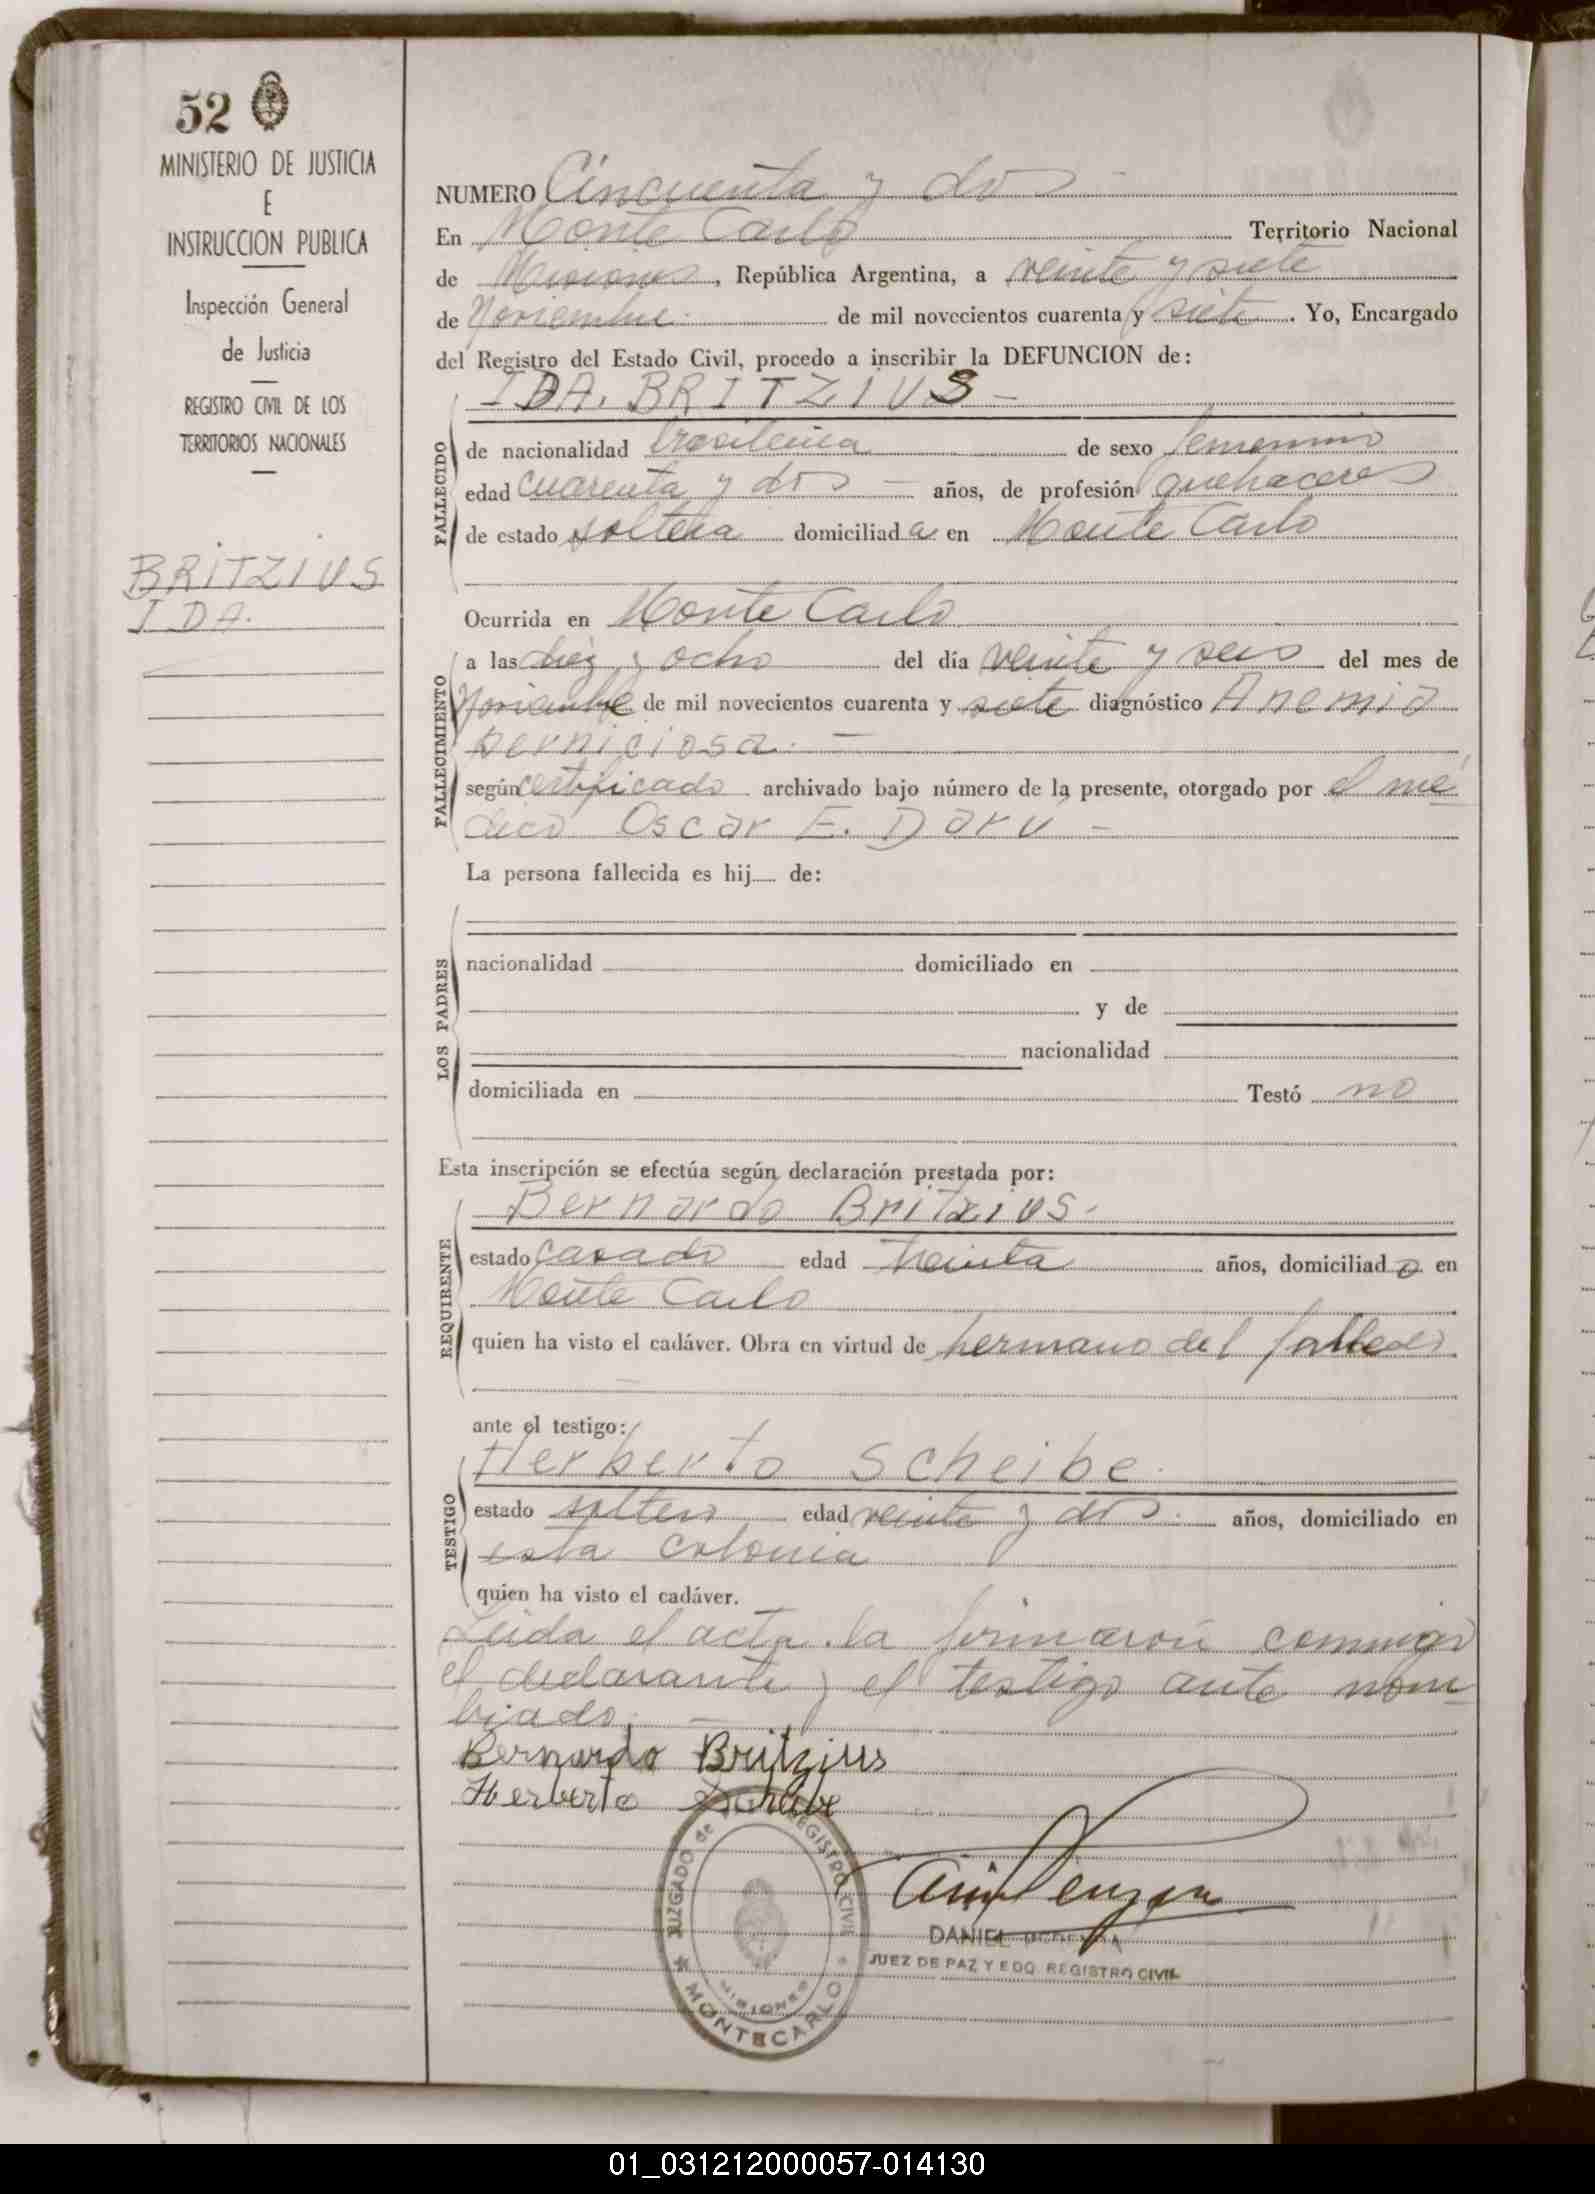 52
MINISTERIO DE JUSTICIA
E
INSTRUCCION PUBLICA
Inspección General
de Justicia
REGISTRO CIVIL DE LOS
TERRITORIOS NACIONALES
BRITZIUS
IDA.
NUMERO Cincuenta y dos
En Monte Carlo Territorio Nacional
de Misiones, República Argentina, a veinte y siete
de Noviembre de mil novecientos cuarenta y siete. Yo, Encargado
del Registro del Estado Civil, procedo a inscribir la DEFUNCION de:
IDA. BRITZIUS -
FALLECIDO
de nacionalidad brasileña de sexo femenino
edad cuarenta y dos - años, de profesión quehaceres
de estado soltera domiciliada en Monte Carlo
Ocurrida en Monte Carlo
FALLECIMIENTO
a las diez y ocho del día veinte y seis del mes de
Noviembre de mil novecientos cuarenta y siete diagnóstico Anemia
perniciosa. -
según certificado archivado bajo número de la presente, otorgado por el mé
dico Oscar E. Darú -
La persona fallecida es hij de:
LOS PADRES
nacionalidad domiciliado en
y de
nacionalidad
domiciliada en Testó no
Esta inscripción se efectúa según declaración prestada por:
REQUIRENTE
Bernardo Britzius.
estado casado edad treinta años, domiciliado en
Monte Carlo
quien ha visto el cadáver. Obra en virtud de hermano del
ante el testigo:
TESTIGO
Herberto Scheibe.
estado soltero edad veinte y dos. años, domiciliado en
esta colonia
quien ha visto el cadáver.
Leida el acta. la firmaron conmigo
el declarante y el testigo ante nom-
brado. -
Bernardo Britzius
Herberto Scheibe
JUZGADO de REGISTRO CIVIL
MISIONES
MONTECARLO
DANIEL
JUEZ DE PAZ Y EDO. REGISTRO CIVIL
01_031212000057-014130